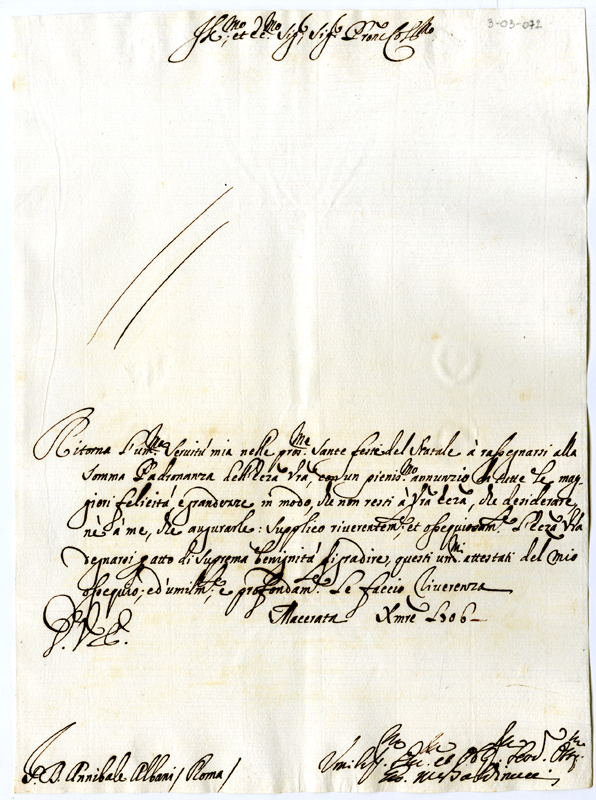 Ill.mo et Ecc.mo Sig.r Sig.r Pron Col.mo
3-03-072
Ritorna l'um.ma Servitù mia nelle pros.me Sante feste del Natale à rassegnarsi alla
somma Padronanza dell'Ecza Vra, con un pienis.mo annunzio di tutte le mag-
giori felicità, e grandezze, in modo, che non resti à Vra Ecza, che desiderare,
nè à me, che augurarle: Supplico riverentem.e et ossequiosam.e l'Ecza Vra
degnarsi p atto di suprema benignità di gradire, questi um.mi attestati del mio
ossequio; ed umilm.e, e profondam.e Le faccio riverenza
Macerata Xmre 1706
D. V. E.
S. D. Annibale Albani / Roma /
Um.mo Dev.mo et Obl.mo